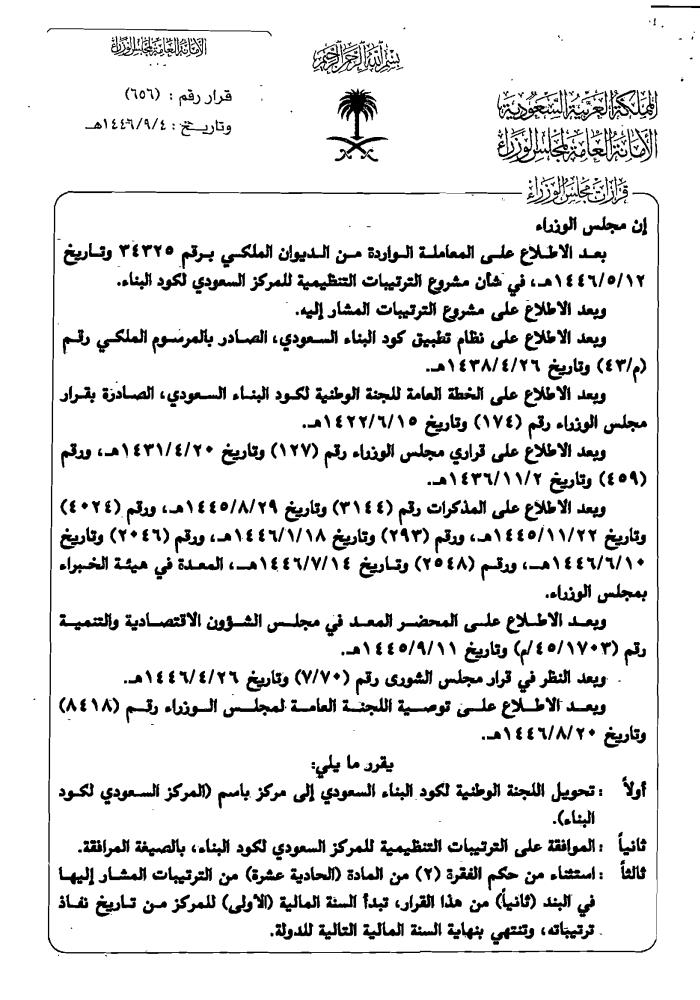 بسم الله الرحمن الرحيم
المملكة العربية السعودية
الأمانة العامة لمجلس الوزراء
الأمانة العامة لمجلس الوزراء
قرار رقم : (٦٥٦)
وتاريخ : ١٤٤٦/٩/٤هـ
قرارات مجلس الوزراء
إن مجلس الوزراء
بعد الاطلاع على المعاملة الواردة من الديوان الملكي برقم ٣٤٣٢٥ وتاريخ
١٤٤٦/٥/١٢هـ، في شأن مشروع الترتيبات التنظيمية للمركز السعودي لكود البناء.
وبعد الاطلاع على مشروع الترتيبات المشار إليه.
وبعد الاطلاع على نظام تطبيق كود البناء السعودي، الصادر بالمرسوم الملكي رقم
(م/٤٣) وتاريخ ١٤٣٨/٤/٢٦هـ.
وبعد الاطلاع على الخطة العامة للجنة الوطنية لكود البناء السعودي، الصادرة بقرار
مجلس الوزراء رقم (١٧٤) وتاريخ ١٤٢٢/٦/١٥هـ.
وبعد الاطلاع على قراري مجلس الوزراء رقم (١٢٧) وتاريخ ١٤٣١/٤/٢٠هـ، ورقم
(٤٥٩) وتاريخ ١٤٣٦/١١/٢هـ.
وبعد الاطلاع على المذكرات رقم (٣١٤٤) وتاريخ ١٤٤٥/٨/٢٩هـ، ورقم (٤٠٢٤)
وتاريخ ١٤٤٥/١١/٢٢هـ، ورقم (٢٩٣) وتاريخ ١٤٤٦/١/١٨هـ، ورقم (٢٠٤٦) وتاريخ
١٤٤٦/٦/١٠هـ، ورقم (٢٥٤٨) وتاريخ ١٤٤٦/٧/١٤هـ، المعدة في هيئة الخبراء
بمجلس الوزراء.
وبعد الاطلاع على المحضر المعد في مجلس الشؤون الاقتصادية والتنمية
رقم (٤٥/١٧٠٣/م) وتاريخ ١٤٤٥/٩/١١هـ.
وبعد النظر في قرار مجلس الشورى رقم (٧/٧٠) وتاريخ ١٤٤٦/٤/٢٦هـ.
وبعد الاطلاع على توصية اللجنة العامة لمجلس الوزراء رقم (٨٤١٨)
وتاريخ ١٤٤٦/٨/٢٠هـ.
يقرر ما يلي:
أولاً : تحويل اللجنة الوطنية لكود البناء السعودي إلى مركز باسم (المركز السعودي لكود
البناء).
ثانياً : الموافقة على الترتيبات التنظيمية للمركز السعودي لكود البناء، بالصيغة المرافقة.
ثالثاً : استثناء من حكم الفقرة (٢) من المادة (الحادية عشرة) من الترتيبات المشار إليها
في البند (ثانياً) من هذا القرار، تبدأ السنة المالية (الأولى) للمركز من تاريخ نفاذ
ترتيباته، وتنتهي بنهاية السنة المالية التالية للدولة.